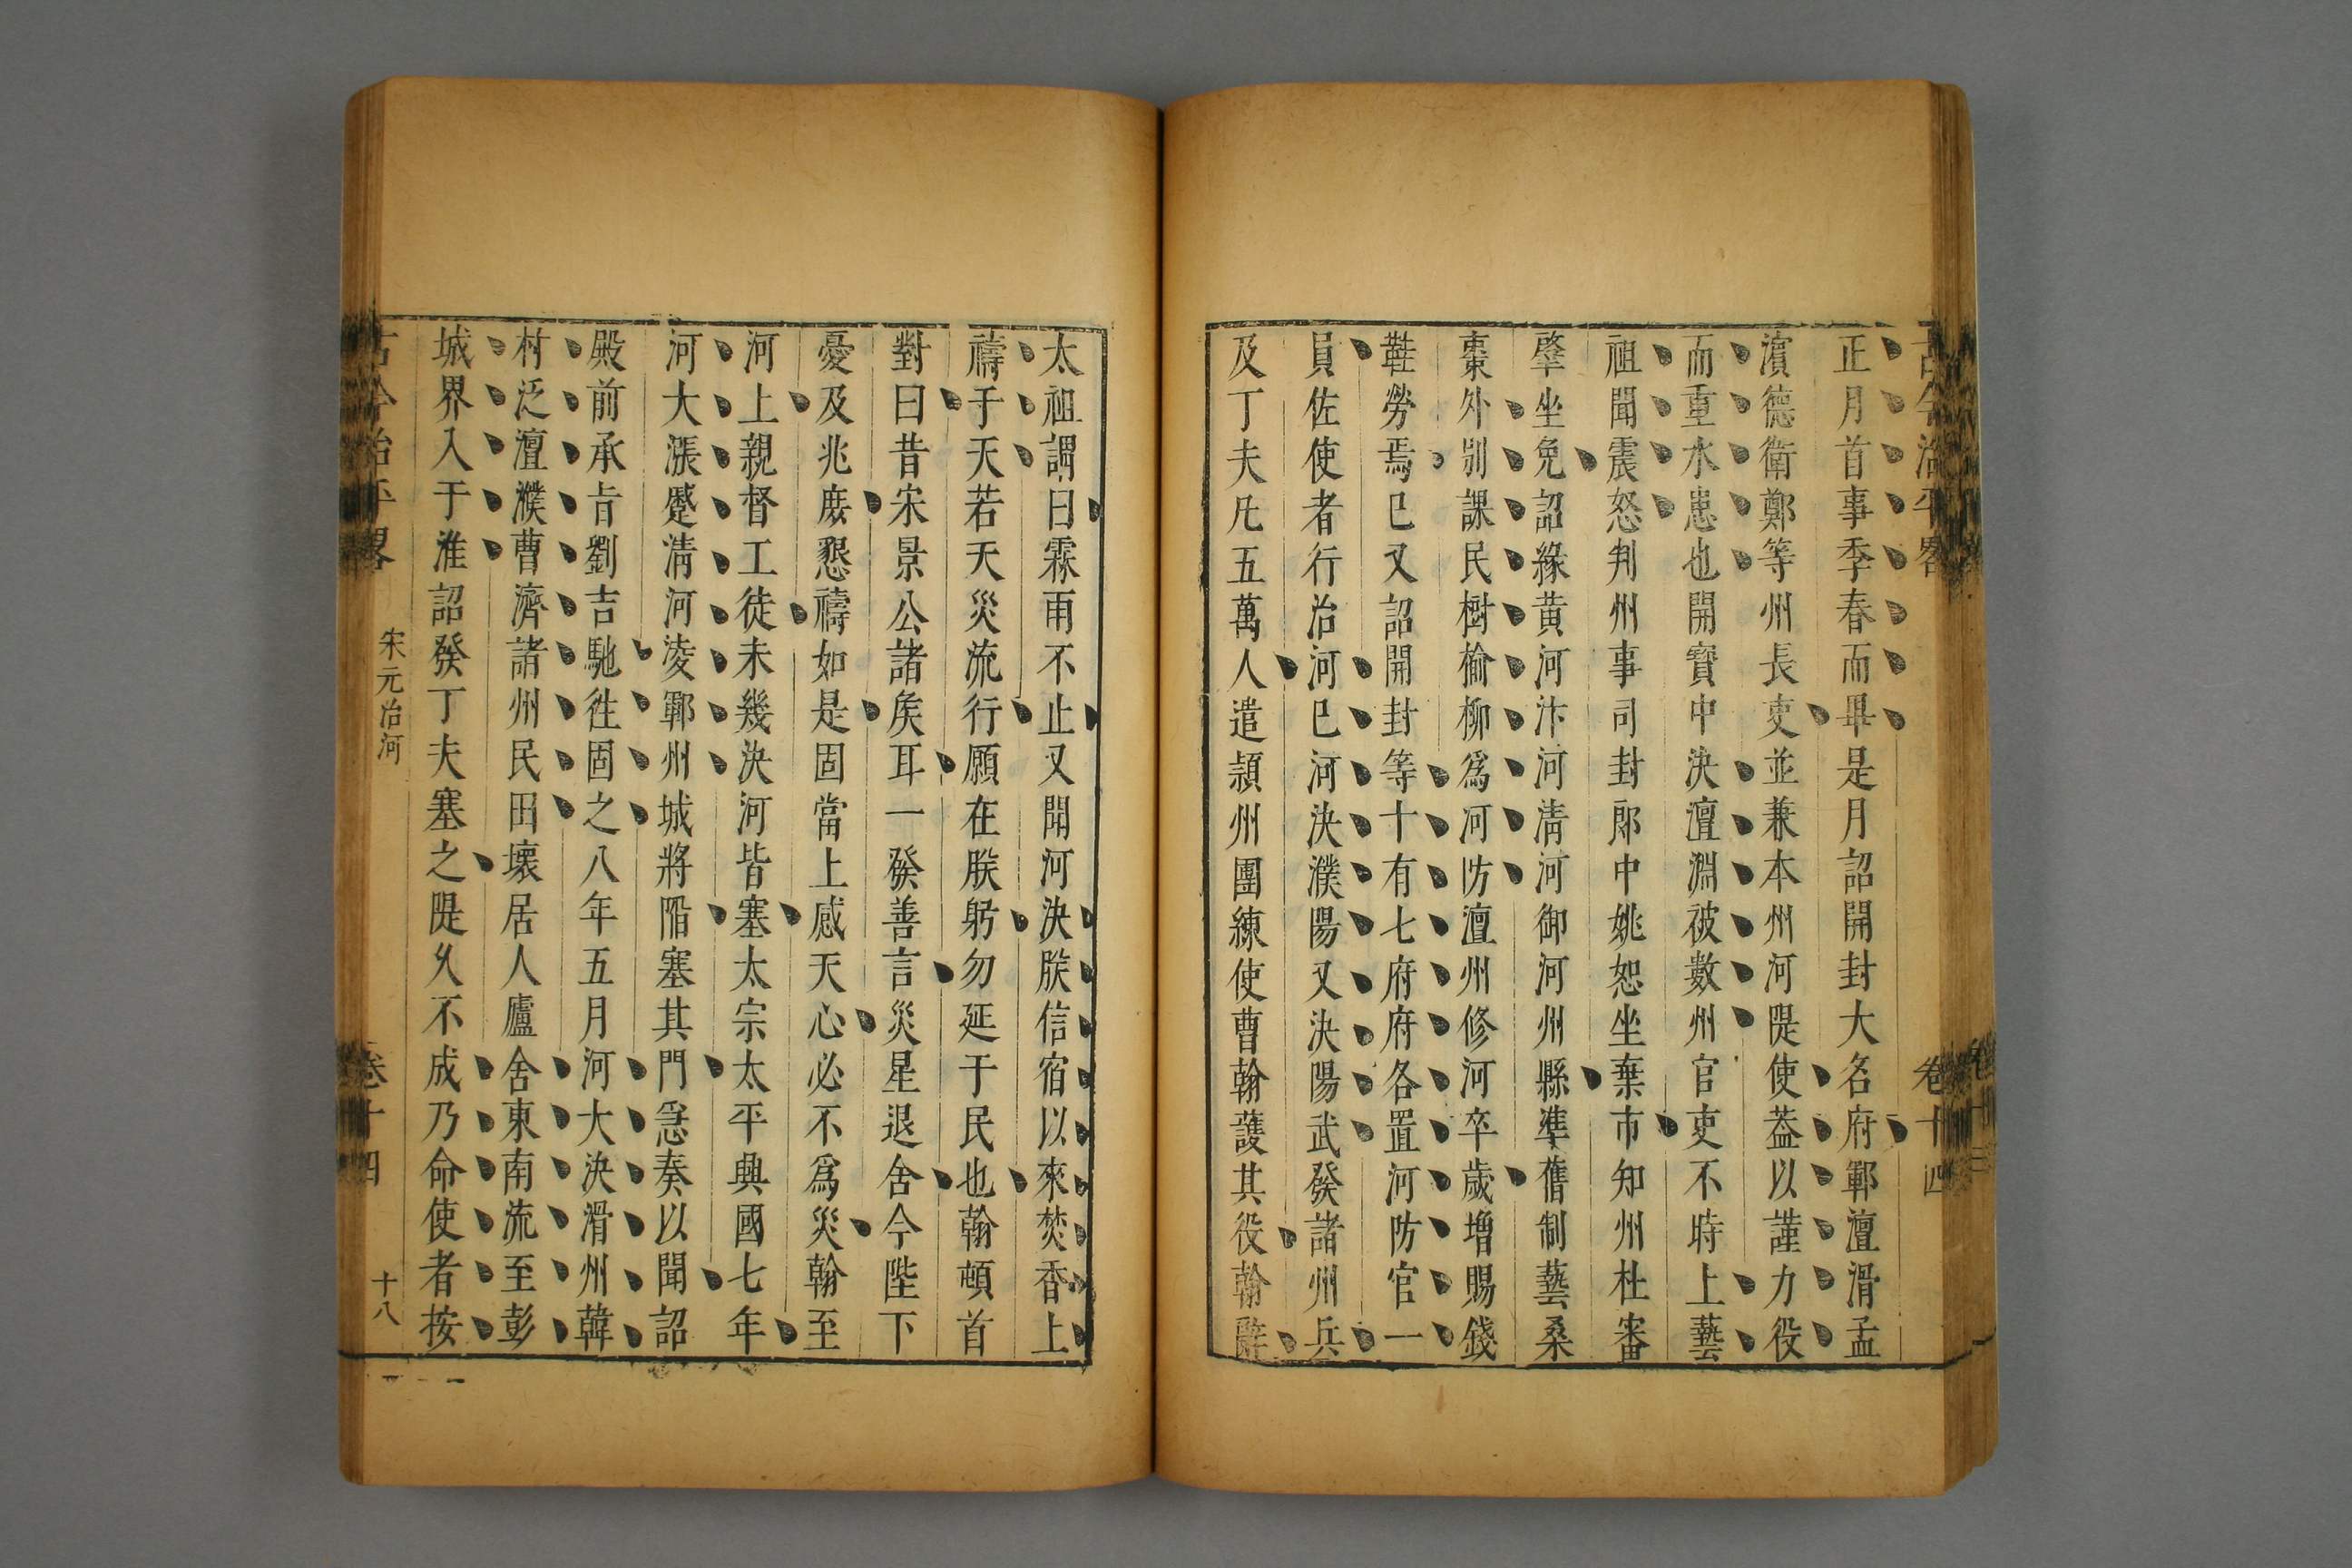 古今治平畧
卷十四
正月首事季春而畢是月詔開封大名府鄆澶滑孟
濵德衛鄭等州長吏並兼本州河隄使葢以謹力役
而重水患也開寳中決澶淵被數州官吏不時上藝
祖聞震怒判州事司封郎中姚恕坐棄市知州杜審
肇坐免詔緣黄河汴河淸河御河州縣準舊制藝桑
棗外別課民樹榆柳爲河防澶州修河卒歲增賜錢
鞋勞焉已又詔開封等十有七府府各置河防官一
員佐使者行治河已河決濮陽又決陽武發諸州兵
及丁夫凡五萬人遣潁州團練使曹翰護其役翰辭
太祖謂曰霖雨不止又聞河決朕信宿以來焚香上
禱于天若天災流行願在朕躬勿延于民也翰頓首
對曰昔宋景公諸矦耳一發善言災星退舍今陛下
憂及兆庶懇禱如是固當上感天心必不爲災翰至
河上親督工徒未幾決河皆塞太宗太平興國七年
河大漲蹙淸河淩鄆州城將陷塞其門急奏以聞詔
殿前承旨劉吉馳徃固之八年五月河大決滑州韓
村泛澶濮曹濟諸州民田壞居人廬舍東南流至彭
城界入于淮詔發丁夫塞之隄久不成乃命使者按
古今治平畧
宋元治河
卷十四
十八